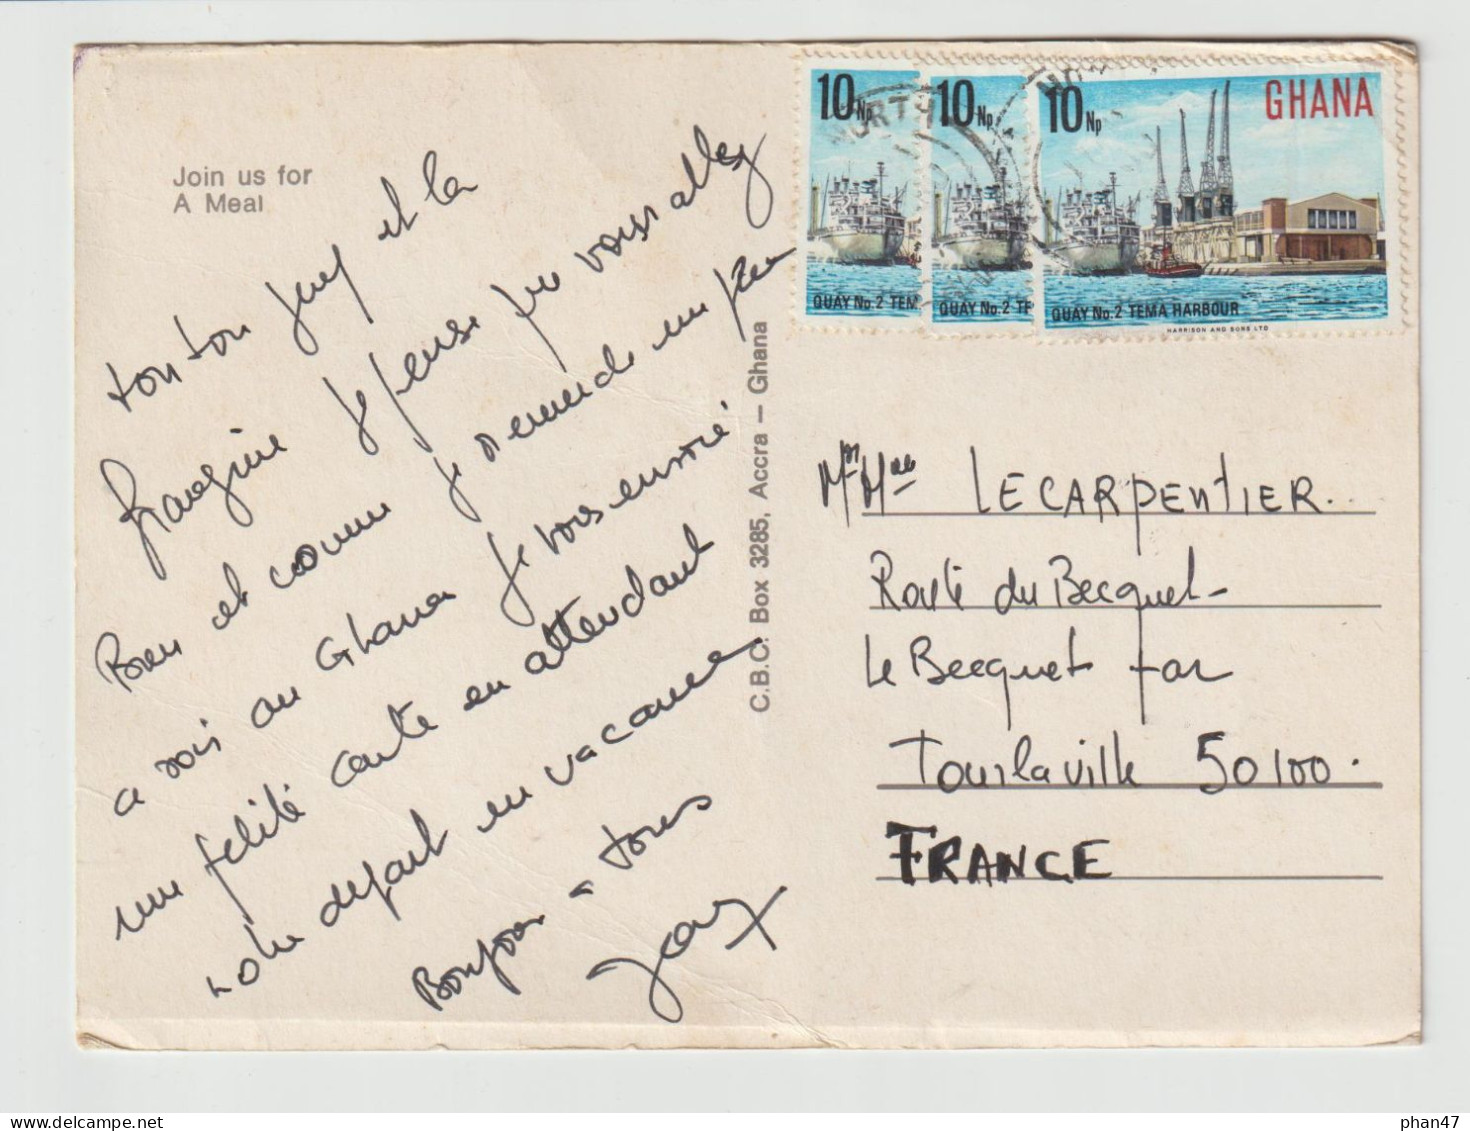 Join us for
A Meal
tonton Josef et la
Francine Je pense que vous allez
Bien et comme Je demande un peu
a vois au Ghana Je vous envoie
une felité carte en attendant
notre depart en vacance.
Bonjour a tous
C.B.C. Box 3285, Accra — Ghana
10 Np
QUAY No.2 TEM
10 Np
QUAY No.2 TE
10 Np
GHANA
QUAY No.2 TEMA HARBOUR
HARRISON AND SONS LTD
NORTH
Mr Mme LECARPENTIER.
Route du Becquet
Le Becquet par
Tourlaville 50100.
FRANCE
phan47